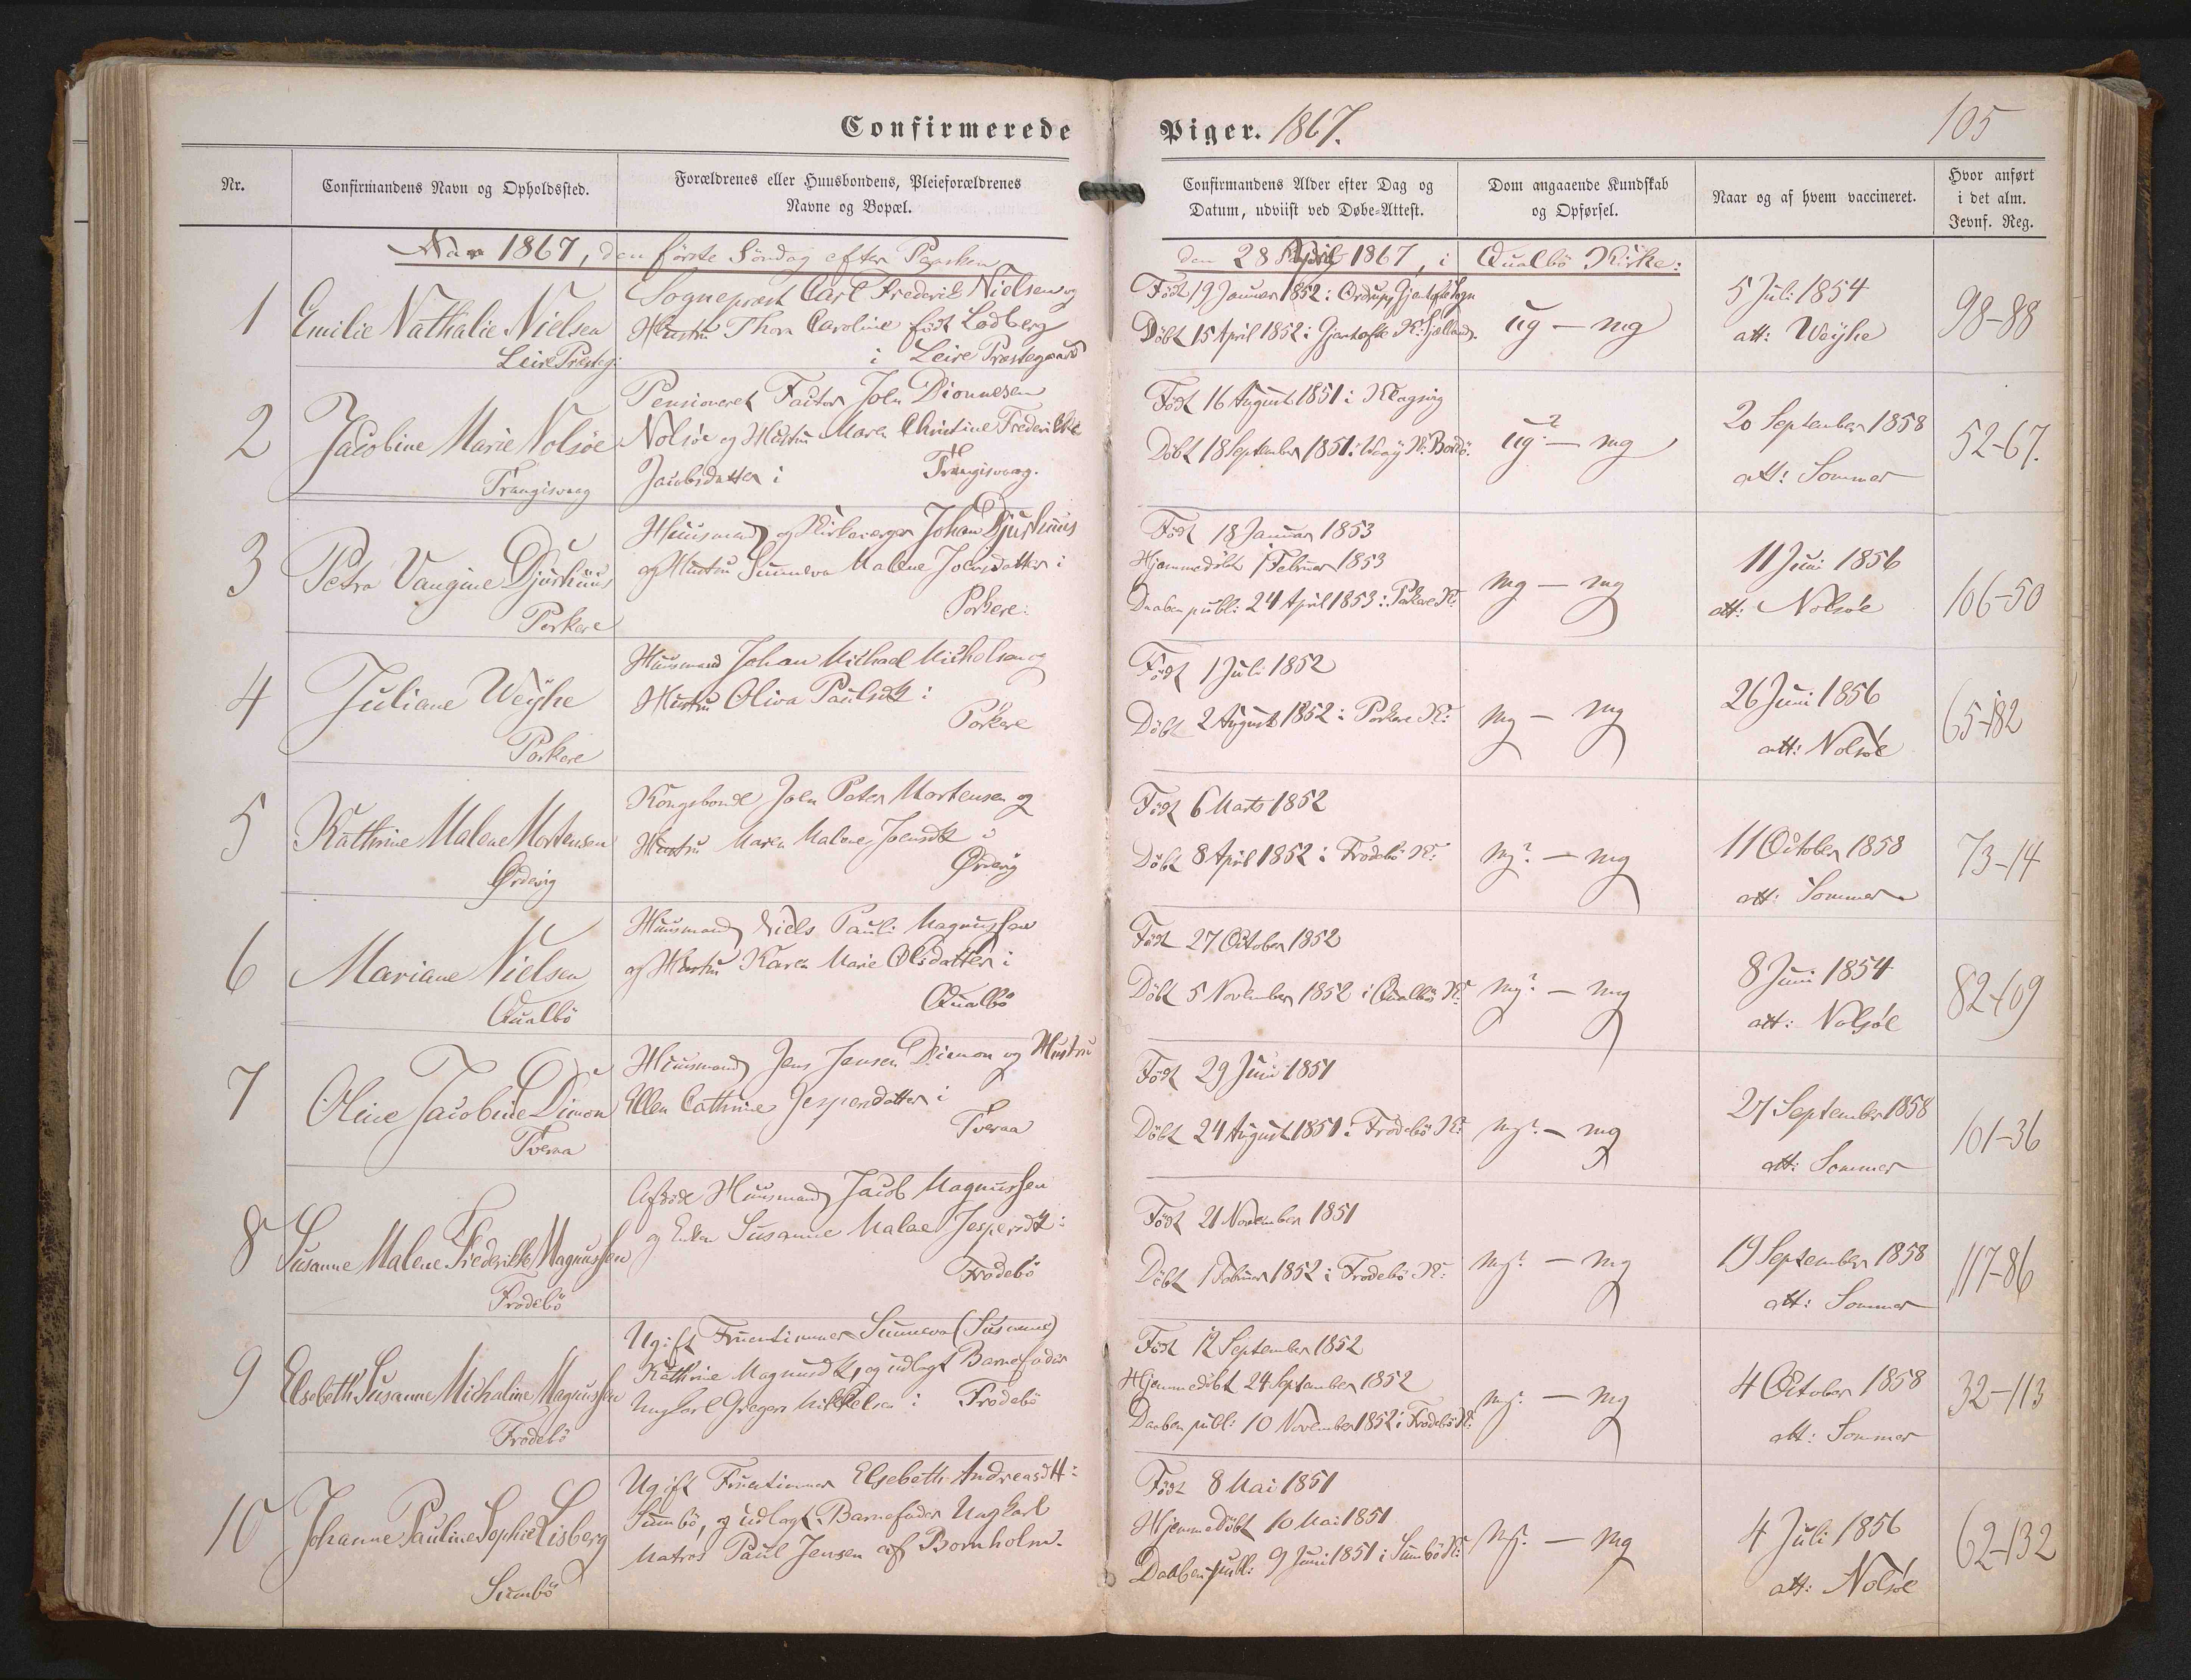 Confirmerede Piger. 1867.
105
Nr.
Confirmandens Navn og Opholdssted.
Forældrenes eller Huusbondens, Pleieforældrenes
Navne og Bopæl.
Confirmandens Alder efter Dag og
Datum, udviist ved Døbe-Attest.
Dom angaaende Kundskab
og Opførsel.
Naar og af hvem vaccineret.
Hvor anført
i det alm.
Jevnf. Reg.
Aar 1867, den første Söndag efter Paasken
den 28 April 1867, i Qualbö Kirke:
1
Emilie Nathalie Nielsen
Leire Præsteg:
Sognepræst Carl Frederik Nielsen og
Hustru Thora Caroline født Lødberg
i Leire Præstegaard
Født 19 Januar 1852 i Ordrup, Gjentofte Sogn
Döbt 15 April 1852 i Gjentofte K: Sjælland.
ug — mg
5 Juli 1854
att: Weyhe
98-88
2
Jacobine Marie Nolsøe
Trangisvaag
Pensioneret Factor Joen Dionnesen
Nolsöe og Hustru Maren Christine Frederikke
Jacobsdatter i Trangisvaag.
Født 16 August 1851 i Klagsvig
Döbt 18 September 1851 i Vaay K: Bordö.
ug? — mg
20 September 1858
att: Sommer
52-67.
3
Petra Vangine Djurhuus
Porkere
Huusmand og Kirkeværger Johan Djurhuus
og Hustru Sunneva Malene Joensdatter i
Porkere.
Født 18 Januar 1853
Hjemmedöbt 1 Februar 1853
Daaben publ: 24 April 1853 i Porkere K:
mg — mg
11 Juni 1856
att: Nolsøe
106-50
4
Juliane Weyhe
Porkere
Huusmand Johan Michael Micholsen og
Hustru Oliva Paulsdt i
Porkere
Født 1 Juli 1852
Döbt 2 August 1852 i Porkere K:
mg — mg
26 Juni 1856
att: Nolsøe
65-182
5
Kathrine Malene Mortensen
Ørdevig
Kongsbonde Joen Peter Mortensen og
Hustru Maren Malene Joensdt i
Ørdevig
Født 6 Marts 1852
Döbt 8 April 1852 i Frodebö K:
mg? — mg
11 October 1858
att: Sommer
73-14
6
Mariane Nielsen
Qualbö
Huusmand Niels Pauli Magnussen
og Hustru Karen Marie Olsdatter i
Qualbö
Født 27 October 1852
Döbt 5 November 1852 i Qualbö K:
mg? — mg
8 Juni 1854
att: Nolsøe
82-109
7
Oline Jacobine Dimon
Tveraa
Huusmand Jens Jensen Dimon og Hustru
Ellen Cathrine Jespersdatter i
Tveraa
Født 29 Juni 1851
Döbt 24 August 1851 i Frodebö K:
mg? — mg
27 September 1858
att: Sommer
101-36
8
Susanne Malene Frederikke Magnussen
Frodebö
Afdöde Huusmand Jacob Magnussen
og Enke Susanne Malene Jespersdt i
Frodebö
Født 21 November 1851
Döbt 1 Februar 1852 i Frodebö K:
mg? — mg
19 September 1858
att: Sommer
117-86
9
Elsebeth Susanne Michaline Magnussen
Frodebö
Ugift Fruentimmer Sunneva (Susanne)
Kathrine Magnusdt, og udlagt Barnefader
Ungkarl Gregers Mikkelsen i Frodebö
Født 12 September 1852
Hjemmedöbt 24 September 1852
Daaben publ: 10 November 1852 i Frodebö K:
mg? — mg
4 October 1858
att: Sommer
32-113
10
Johanne Pauline Sophie Lisberg
Sumbö
Ugift Fruentimmer Elsebeth Andreasdtt i
Sumbö, og udlagt Barnefader Ungkarl
Matros Paul Jensen af Bornholm.
Født 8 Mai 1851
Hjemmedöbt 10 Mai 1851
Daaben publ: 9 Juni 1851 i Sumbö K:
mg? — mg
4 Juli 1856
att: Nolsøe
62-132